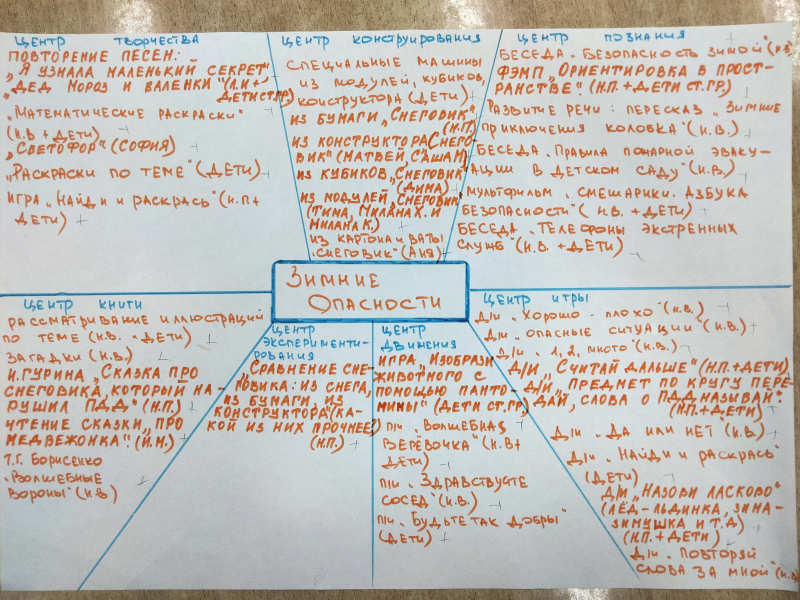 ЦЕНТР ТВОРЧЕСТВА
ПОВТОРЕНИЕ ПЕСЕН:
„Я УЗНАЛА МАЛЕНЬКИЙ СЕКРЕТ"
„ДЕД МОРОЗ И ВАЛЕНКИ" (Л.И+
ДЕТИ СТ.ГР)
„МАТЕМАТИЧЕСКИЕ РАСКРАСКИ"
(Н.В + ДЕТИ)
„СВЕТОФОР" (СОФИЯ)
„РАСКРАСКИ ПО ТЕМЕ" (ДЕТИ)
ИГРА „НАЙДИ И РАСКРАСЬ" (Н.П+
ДЕТИ)
ЦЕНТР КОНСТРУИРОВАНИЯ
СПЕЦИАЛЬНЫЕ МАШИНЫ
ИЗ МОДУЛЕЙ, КУБИКОВ,
КОНСТРУКТОРА (ДЕТИ)
ИЗ БУМАГИ „СНЕГОВИК"
(Н.П.)
ИЗ КОНСТРУКТОРА „СНЕГО-
ВИК" (МАТВЕЙ, САША М)
ИЗ КУБИКОВ „СНЕГОВИК"
(ДИМА)
ИЗ МОДУЛЕЙ „СНЕГОВИК"
(ТИМА, МИЛАНА Х. И
МИЛАНА К.)
ИЗ КАРТОНА И ВАТЫ
„СНЕГОВИК" (АНЯ)
ЦЕНТР ПОЗНАНИЯ
БЕСЕДА „БЕЗОПАСНОСТЬ ЗИМОЙ" (Н.В
ФЭМП „ОРИЕНТИРОВКА В ПРОСТ-
РАНСТВЕ" (Н.П. + ДЕТИ СТ.ГР)
РАЗВИТИЕ РЕЧИ: ПЕРЕСКАЗ „ЗИМНИЕ
ПРИКЛЮЧЕНИЯ КОЛОБКА" (Н.В.)
БЕСЕДА „ПРАВИЛА ПОЖАРНОЙ ЭВАКУ-
АЦИИ В ДЕТСКОМ САДУ" (Н.В.)
МУЛЬТФИЛЬМ „СМЕШАРИКИ. АЗБУКА
БЕЗОПАСНОСТИ" (Н.В. + ДЕТИ)
БЕСЕДА „ТЕЛЕФОНЫ ЭКСТРЕННЫХ
СЛУЖБ" (Н.В. + ДЕТИ)
ЗИМНИЕ
ОПАСНОСТИ
ЦЕНТР КНИГИ
РАССМАТРИВАНИЕ ИЛЛЮСТРАЦИЙ
ПО ТЕМЕ (Н.В. + ДЕТИ)
ЗАГАДКИ (Н.В.)
И. ГУРИНА „СКАЗКА ПРО
СНЕГОВИКА, КОТОРЫЙ НА-
РУШИЛ ПДД" (Н.П.)
ЧТЕНИЕ СКАЗКИ „ПРО
МЕДВЕЖОНКА" (И.М.)
Т.Г. БОРИСЕНКО
„ВОЛШЕБНЫЕ
ВОРОНЫ" (Н.В)
ЦЕНТР
ЭКСПЕРИМЕНТИ-
РОВАНИЯ
„СРАВНЕНИЕ СНЕ-
ГОВИКА: ИЗ СНЕГА,
ИЗ БУМАГИ, ИЗ
КОНСТРУКТОРА" (КА-
КОЙ ИЗ НИХ ПРОЧНЕЕ)
(Н.П.)
ЦЕНТР
ДВИЖЕНИЯ
ИГРА „ИЗОБРАЗИ
ЖИВОТНОГО С
ПОМОЩЬЮ ПАНТО-
МИМЫ" (ДЕТИ СТ.ГР.)
П/И „ВОЛШЕБНАЯ
ВЕРЁВОЧКА" (Н.В+
ДЕТИ)
П/И „ЗДРАВСТВУЙТЕ
СОСЕД" (Н.В.)
П/И „БУДЬТЕ ТАК ДОБРЫ"
(ДЕТИ)
ЦЕНТР ИГРЫ
Д/И „ХОРОШО - ПЛОХО" (Н.В.)
Д/И „ОПАСНЫЕ СИТУАЦИИ" (Н.В.)
Д/И „1, 2, МНОГО" (Н.В.)
Д/И „СЧИТАЙ ДАЛЬШЕ" (Н.П+ДЕТИ)
Д/И „ПРЕДМЕТ ПО КРУГУ ПЕРЕ-
ДАЙ, СЛОВА О ПДД НАЗЫВАЙ"
(Н.П+ДЕТИ)
Д/И „ДА ИЛИ НЕТ" (Н.В.)
Д/И „НАЙДИ И РАСКРАСЬ"
(ДЕТИ)
Д/И „НАЗОВИ ЛАСКОВО"
(ЛЁД-ЛЬДИНКА, ЗИМА-
ЗИМУШКА И Т.Д)
(Н.П. + ДЕТИ)
Д/И „ПОВТОРЯЙ
СЛОВА ЗА МНОЙ" (Н.В)